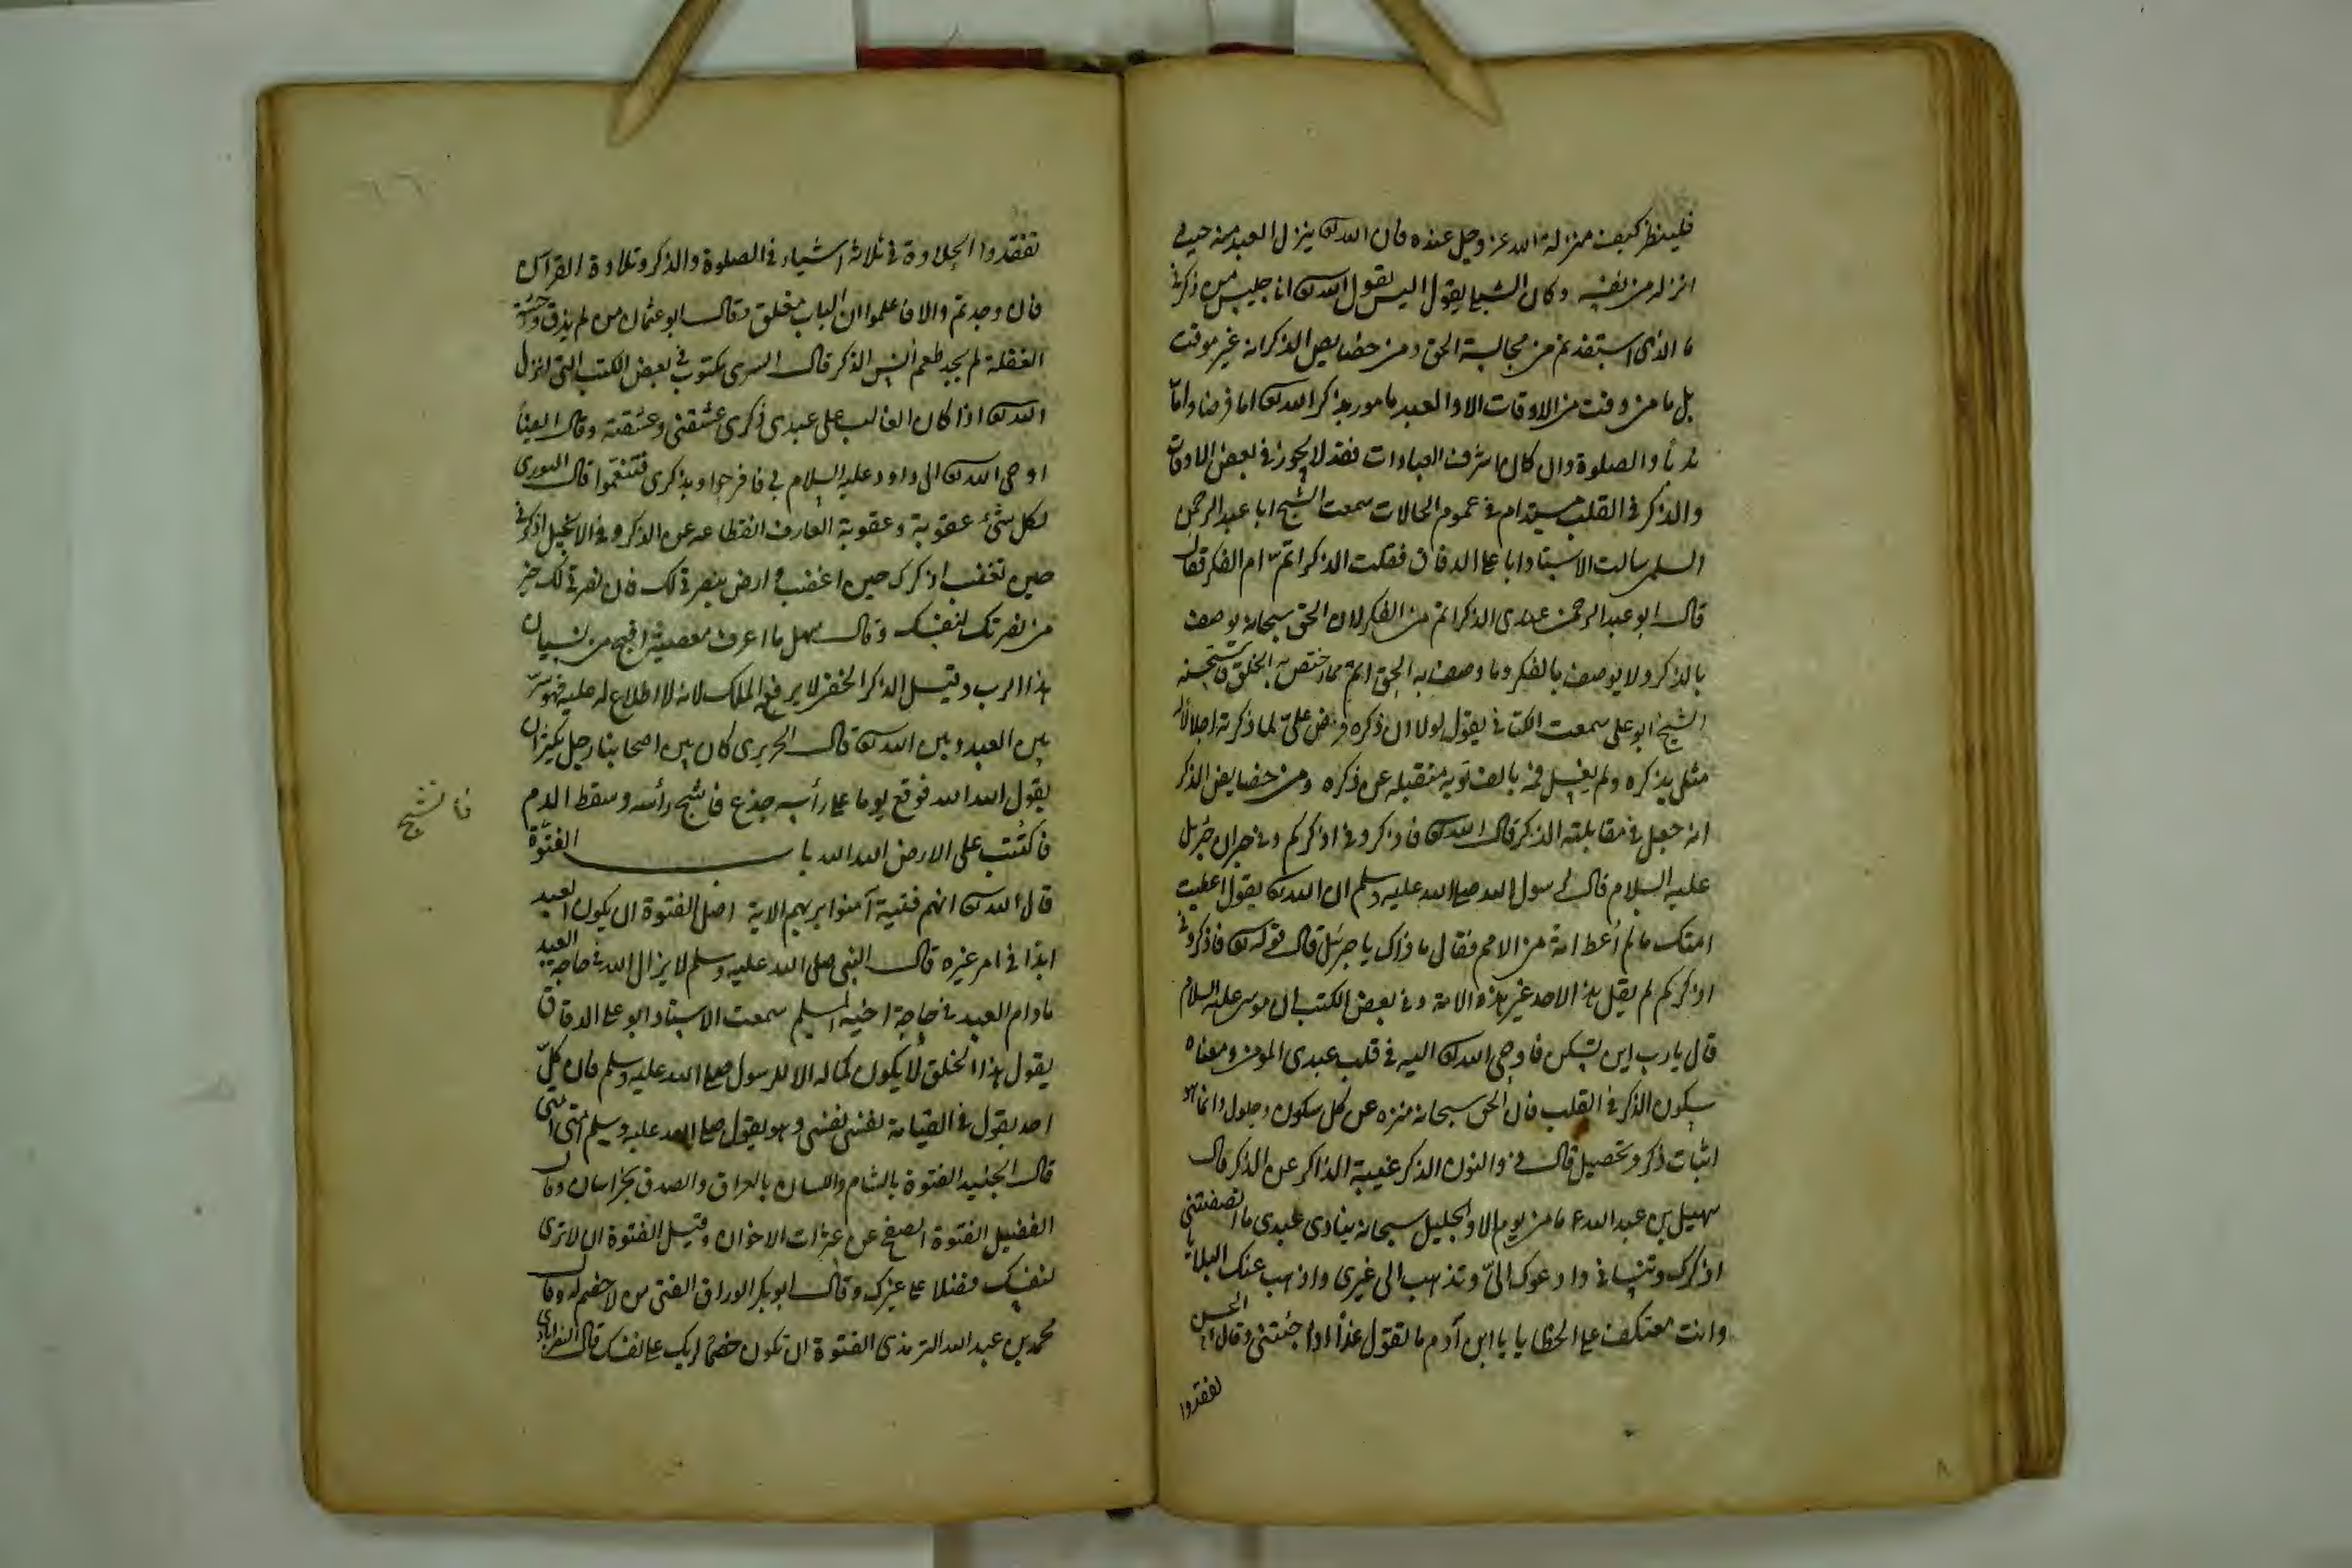 فلينظر كيف منزلة الله عز وجل عنده فان الله تع ينزل العبد منه حيث
انزله من نفسه وكان الشبلي يقول اليس يقول الله تع انا جليس من ذكرني
ما الذي استفدتم من مجالسة الحق ومن خصايص الذكر انه غير موقت
بل ما من وقت من الاوقات الا والعبد مامور بذكر الله تع اما فرضا واما
ندبا والصلوة وان كان اشرف العبادات فقد لا يجوز في بعض الاوقات
والذكر في القلب مستدام في عموم الحالات سمعت الشيخ ابا عبد الرحمن
السلمي سالت الاستاد ابا علي الدقاق فقلت الذكر اتم ام الفكر فقال
قال ابو عبد الرحمن عندي الذكر اتم من الفكر لان الحق سبحانه يوصف
بالذكر ولا يوصف بالفكر وما وصف به الحق اتم مما اختص به الخلق فاستحسنه
الشيخ ابو علي سمعت الكتاني يقول لولا ان ذكره فرض علي لما ذكرته اجلالا له
مثلي يذكره ولم يغسل فمه بالف توبه متقبله عن ذكره ومن خصايص الذكر
انه جعل في مقابلته الذكر قال الله تع فاذكروني اذكركم وفي خبر ان جبرئل
عليه السلام قال لرسول الله صلى الله عليه وسلم ان الله تع يقول اعطيت
امتك ما لم اعط امة من الامم فقال ما ذاك يا جبرئل قال قوله تع فاذكروني
اذكركم لم يقل هذا لاحد غير هذه الامة وفي بعض الكتب ان موسى عليه السلام
قال يارب اين تسكن فاوحى الله تع اليه في قلب عبدي المؤمن ومعناه
سكون الذكر في القلب فان الحق سبحانه منزه عن كل سكون وحلول وانما هو
اثبات ذكر وتحصيل قال ذو النون الذكر غيبة الذاكر عن الذكر قال
سهيل بن عبد الله ما من يوم الا والجليل سبحانه ينادي عبدي ما انصفتني
اذكرك وتنساني وادعوك الي وتذهب الى غيري واذهب عنك البلايا
وانت معتكف على الخطايا يا ابن آدم ما تقول غدا اذا جئتني وقال الحسن
تفقدوا
تفقدوا الحلاوة في ثلاثة اشياء في الصلوة والذكر وتلاوة القرآن
فان وجدتم والا فاعلموا ان الباب مغلق وقال ابو عثمان من لم يذق وحشة
الغفلة لم يجد طعم انس الذكر قال السري مكتوب في بعض الكتب التي انزل
الله تع اذا كان الغالب على عبدي ذكري عشقني وعشقته وقال ايضا
اوحى الله تع الى داود عليه السلام بي فافرحوا وبذكري فتنعموا قال النوري
لكل شئ عقوبة وعقوبة العارف انقطاعه عن الذكر وفي الانجيل اذكرني
حين تغضب اذكرك حين اغضب وارض بنصرتي لك فان نصرتي لك خير
من نصرتك لنفسك وقال سهل ما اعرف معصية اقبح من نسيان
هذا الرب وقيل الذكر الخفي لا يرفعه الملك لانه لا اطلاع له عليه فهو سر
بين العبد وبين الله تع قال الجريري كان بين اصحابنا رجل يكثر ان
يقول الله الله فوقع يوما على رأسه جذع فانشج رأسه وسقط الدم
فانشج
فاكتتب على الارض الله الله باب الفتوة
قال الله تع انهم فتية آمنوا بربهم الاية اصل الفتوة ان يكون العبد
ابدا في امر غيره قال النبي صلى الله عليه وسلم لا يزال الله في حاجة العبد
مادام العبد في حاجة اخيه المسلم سمعت الاستاد ابو علي الدقاق
يقول هذا الخلق لا يكون كماله الا للرسول صلى الله عليه وسلم فان كل
احد يقول في القيامة نفسي نفسي وهو يقول صلى الله عليه وسلم امتي امتي
قال الجنيد الفتوة بالشام واللسان بالعراق والصدق بخراسان وقال
الفضيل الفتوة الصفح عن عثرات الاخوان وقيل الفتوة ان لا ترى
لنفسك فضلا على غيرك وقال ابو بكر الوراق الفتى من لا خصم له وقال
محمد بن عبد الله الترمذي الفتوة ان تكون خصما لربك على نفسك قال النصرابادي